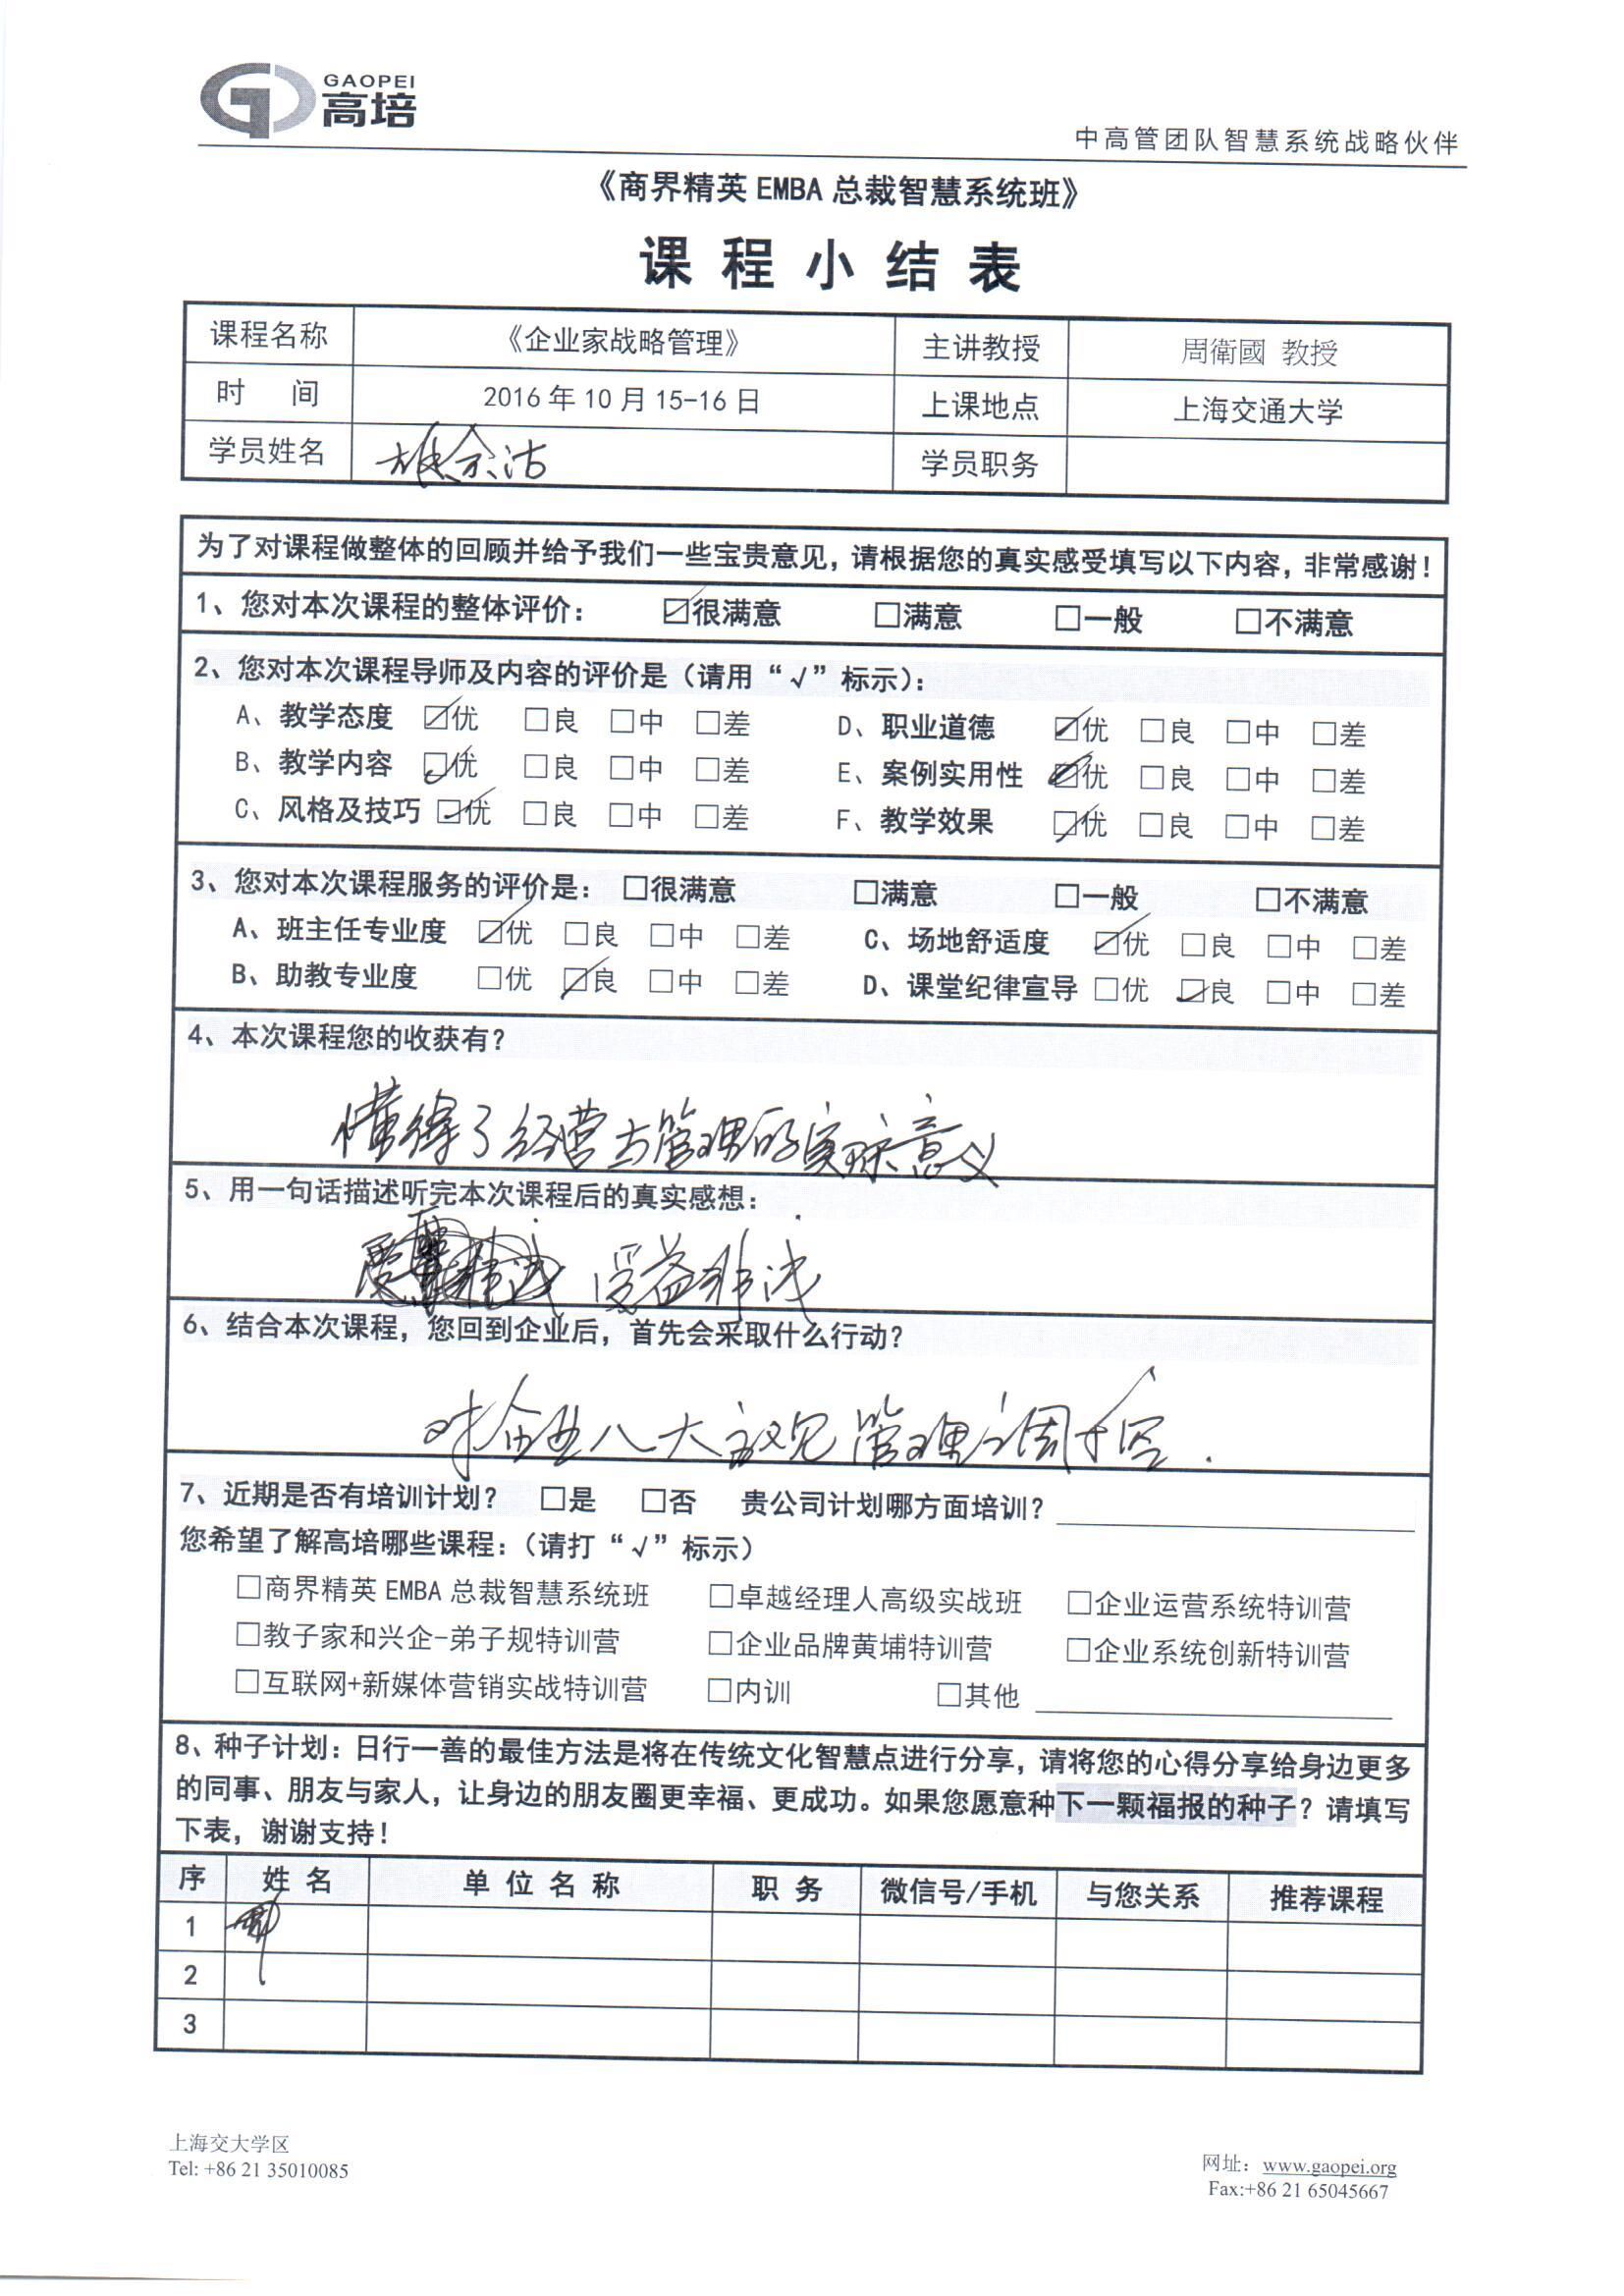 GAOPEI
高培
中高管团队智慧系统战略伙伴
《商界精英 EMBA 总裁智慧系统班》
课 程 小 结 表
课程名称 《企业家战略管理》 主讲教授 周衛國 教授
时 间 2016 年 10 月 15-16 日 上课地点 上海交通大学
学员姓名 学员职务
为了对课程做整体的回顾并给予我们一些宝贵意见，请根据您的真实感受填写以下内容，非常感谢！
1、您对本次课程的整体评价： ☑很满意 □满意 □一般 □不满意
2、您对本次课程导师及内容的评价是（请用“√”标示）：
A、教学态度 ☑优 □良 □中 □差 D、职业道德 ☑优 □良 □中 □差
B、教学内容 ☑优 □良 □中 □差 E、案例实用性 ☑优 □良 □中 □差
C、风格及技巧 ☑优 □良 □中 □差 F、教学效果 ☑优 □良 □中 □差
3、您对本次课程服务的评价是： □很满意 □满意 □一般 □不满意
A、班主任专业度 ☑优 □良 □中 □差 C、场地舒适度 ☑优 □良 □中 □差
B、助教专业度 □优 ☑良 □中 □差 D、课堂纪律宣导 □优 ☑良 □中 □差
4、本次课程您的收获有？
懂得了经营与管理的实际意义
5、用一句话描述听完本次课程后的真实感想：
受益非浅
6、结合本次课程，您回到企业后，首先会采取什么行动？
对企业八大 管理
7、近期是否有培训计划？ □是 □否 贵公司计划哪方面培训？
您希望了解高培哪些课程：（请打“√”标示）
□商界精英 EMBA 总裁智慧系统班 □卓越经理人高级实战班 □企业运营系统特训营
□教子家和兴企-弟子规特训营 □企业品牌黄埔特训营 □企业系统创新特训营
□互联网+新媒体营销实战特训营 □内训 □其他
8、种子计划：日行一善的最佳方法是将在传统文化智慧点进行分享，请将您的心得分享给身边更多
的同事、朋友与家人，让身边的朋友圈更幸福、更成功。如果您愿意种下一颗福报的种子？请填写
下表，谢谢支持！
序 姓 名 单 位 名 称 职 务 微信号/手机 与您关系 推荐课程
1
2
3
上海交大学区
Tel: +86 21 35010085
网址：www.gaopei.org
Fax:+86 21 65045667